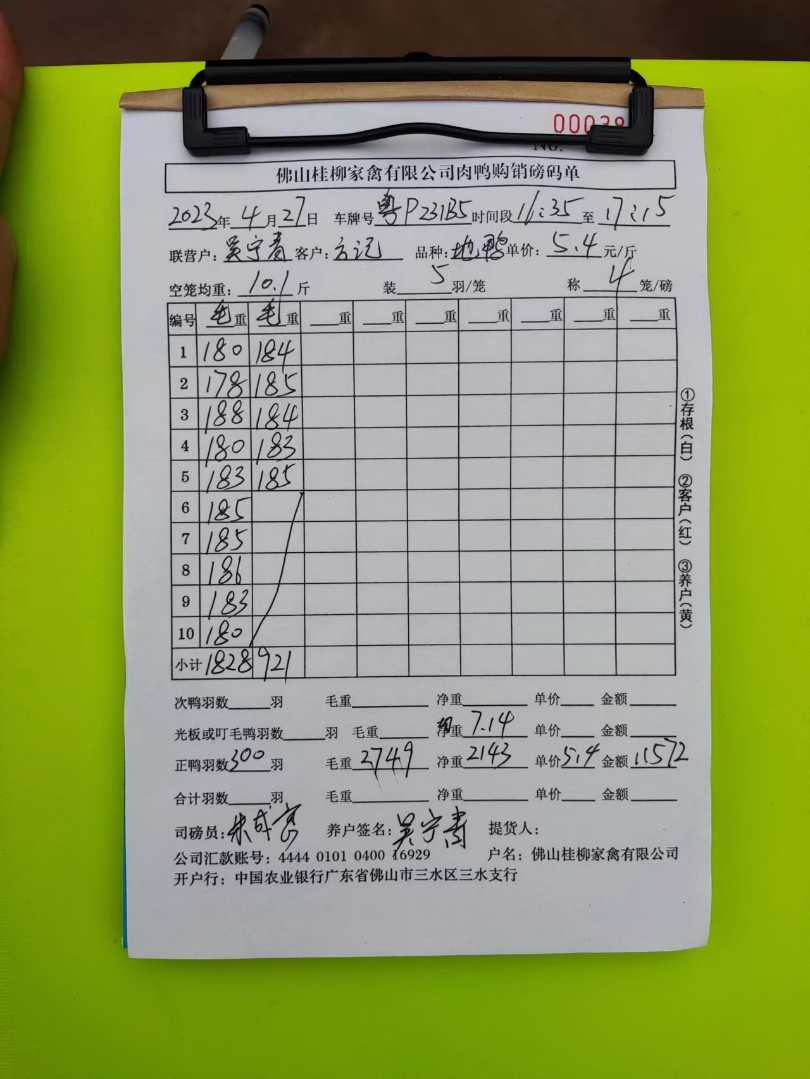 00038
No.
佛山桂柳家禽有限公司肉鸭购销磅码单
2023年4月27日 车牌号粤P231B5时间段16:35至17:15
联营户:吴宁青客户:方记 品种:地鸭单价:5.4元/斤
空笼均重:10.1斤 装5羽/笼 称4笼/磅
编号 毛重 毛重 重 重 重 重 重 重 重
1 180 184
2 178 185
3 188 184
4 180 183
5 183 185
6 185
7 185
8 186
9 183
10 180
小计 1828 921
①存根(白) ②客户(红) ③养户(黄)
次鸭羽数 羽 毛重 净重 单价 金额
光板或叮毛鸭羽数 羽 毛重 重7.14 单价 金额
正鸭羽数300羽 毛重2749 净重2143 单价5.4 金额11572
合计羽数 羽 毛重 净重 单价 金额
司磅员: 养户签名:吴宁青 提货人:
公司汇款账号:4444 0101 0400 16929 户名:佛山桂柳家禽有限公司
开户行:中国农业银行广东省佛山市三水区三水支行